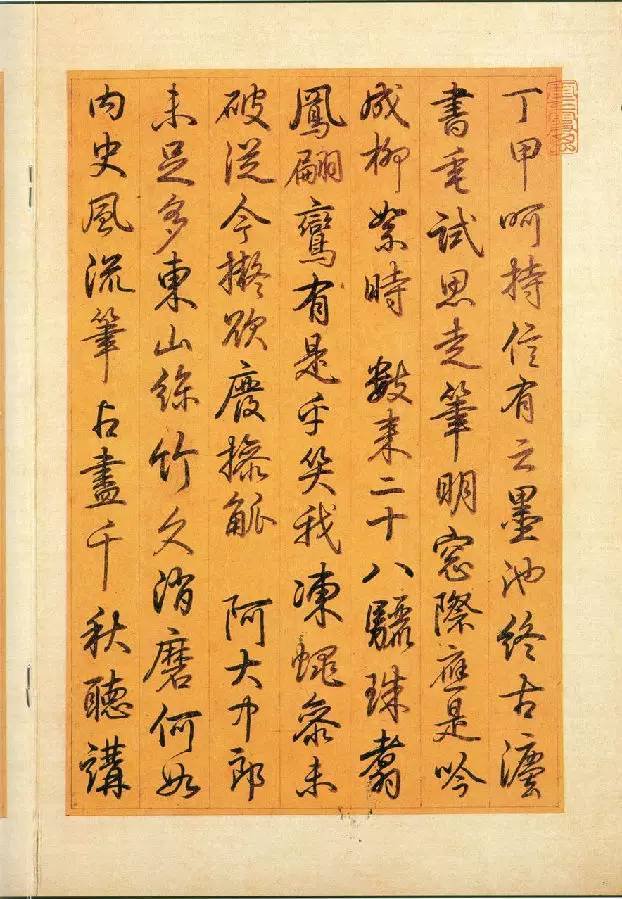 丁甲呵持信有之墨池終古灋
書垂試思走筆明窗際應是吟
成柳絮時 數来二十八驪珠翥
鳳翩鸞有是乎笑我凍蠅參未
破從今擬欲廢操觚 阿大中郎
未足多東山絲竹久消磨何如
内史風流筆占盡千秋聽講